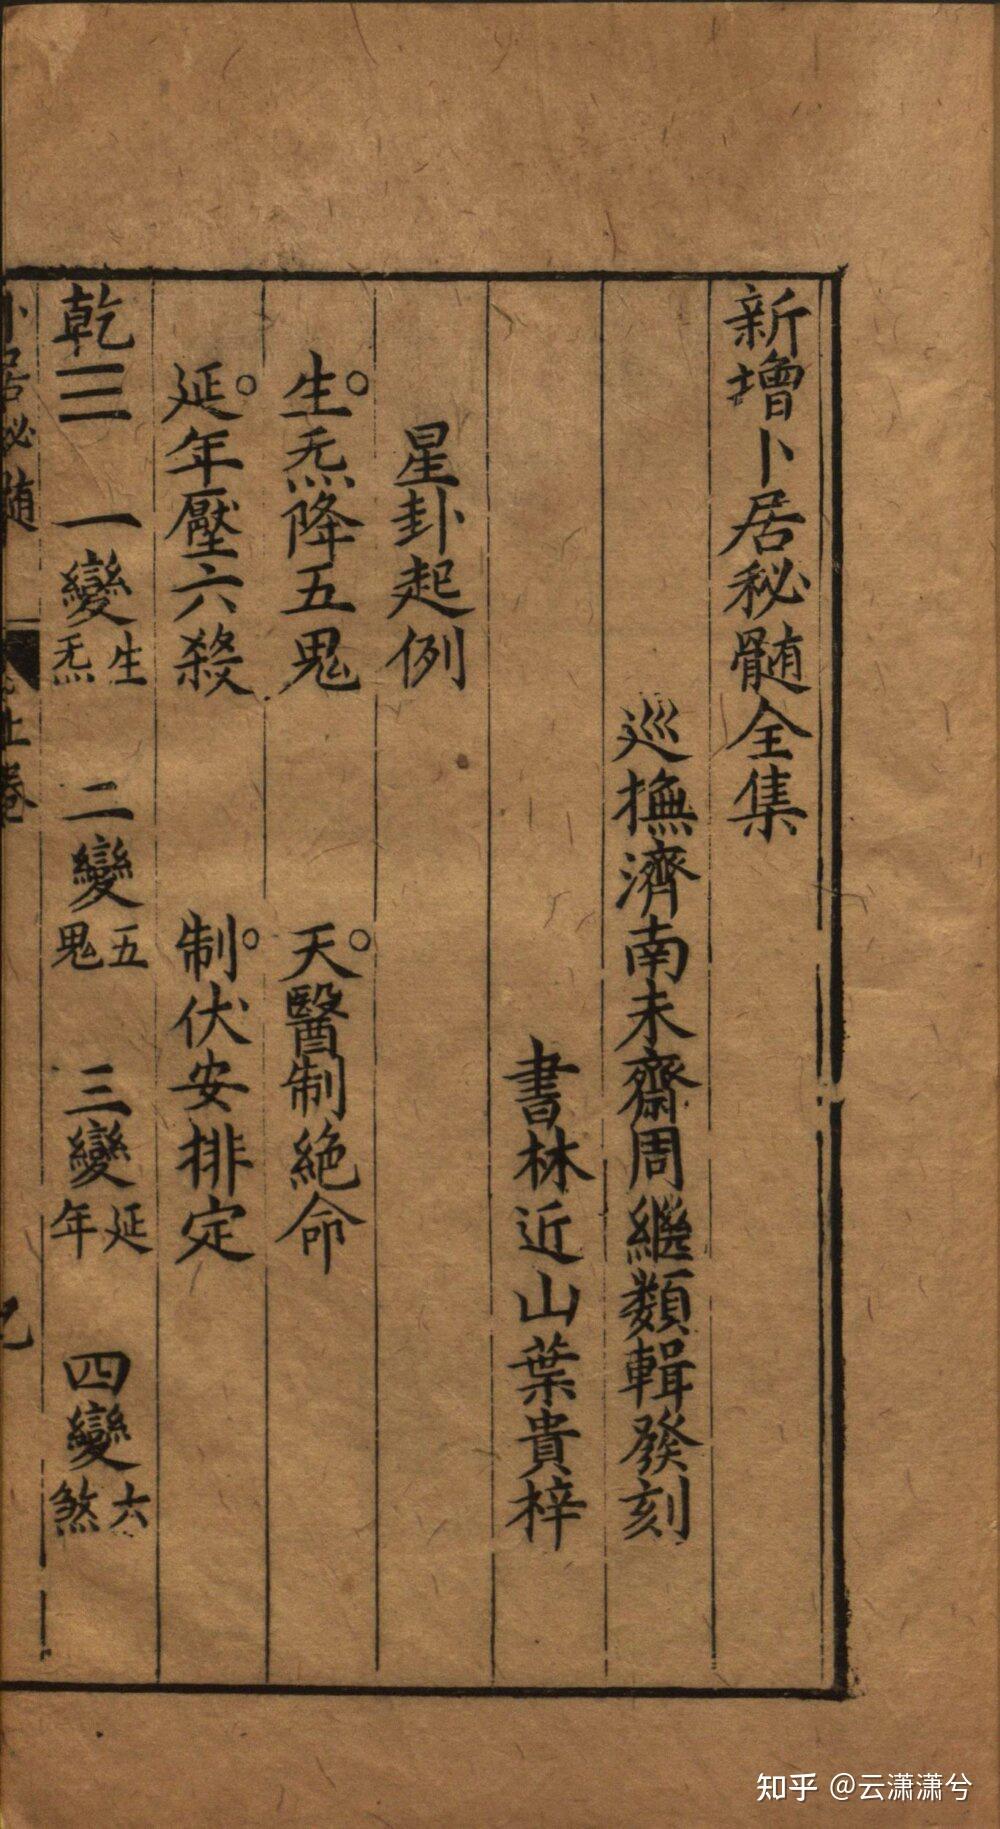 新增卜居秘髄全集
巡撫濟南未齋周繼類輯發刻
書林近山葉貴梓
星卦起例
生炁降五鬼 天醫制絶命
延年壓六殺 制伏安排定
乾☰ 一變生炁 二變五鬼 三變延年 四變六煞
卜居秘髄 上卷
知乎 @云潇潇兮